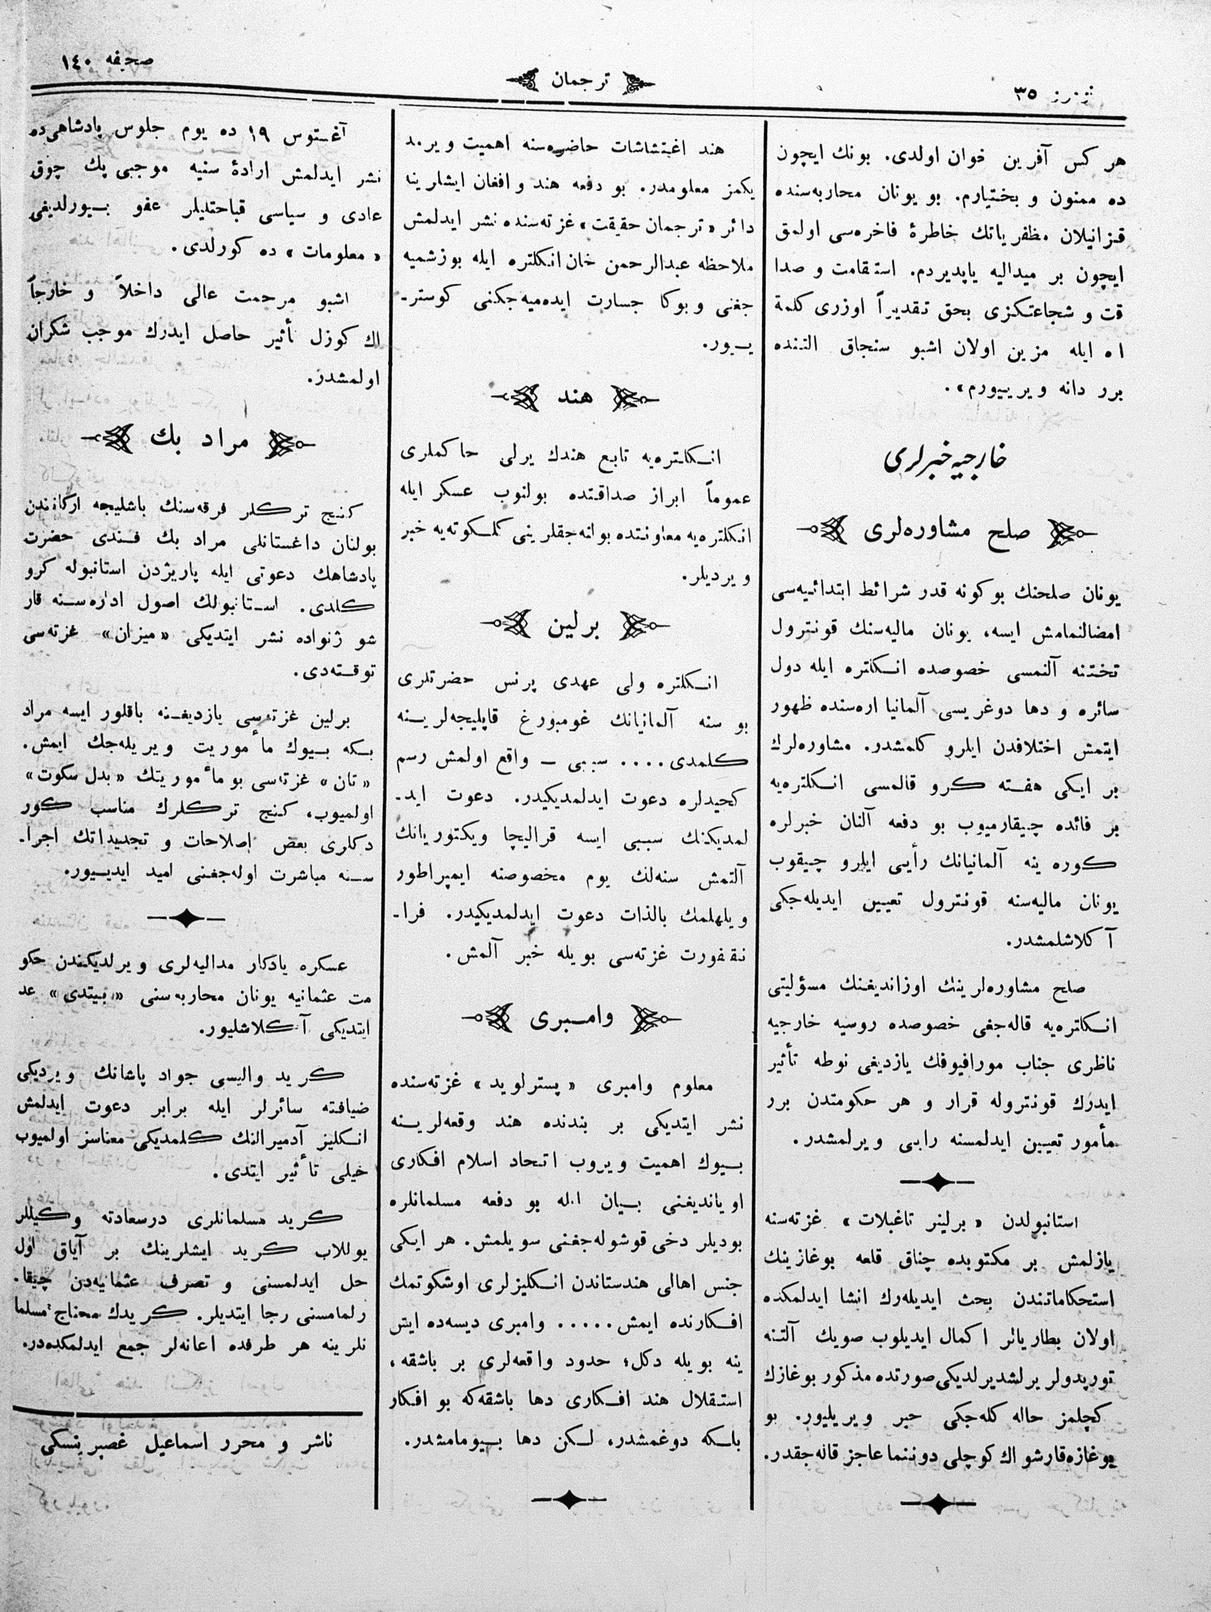 صحیفه ١٤٠
ترجمان
نومرو ٣٥
هر کس آفرین خوان اولدی. بونك ایچون
ده ممنون و بختیارم. بو یونان محاربه‌سنده
قزانیلان مظفریاتك خاطرهٔ فاخره‌سی اولمق
ایچون بر میدالیه یاپدیردم. استقامت و صدا
قت و شجاعتکزی بحق تقدیراً اوزری کلمهٔ
ایله مزین اولان اشبو سنجاق التنده
برر دانه ویرییورم».
خارجیه خبرلری
صلح مشاوره‌لری
یونان صلحنك بوکونه قدر شرائط ابتدائیه‌سی
امضالنمامش ایسه، یونان مالیه‌سنك قونترول
تختنه آلنمسی خصوصده انکلتره ایله دول
سائره و دها دوغریسی آلمانیا اره‌سنده ظهور
ایتمش اختلافدن ایلرو کلمشدر. مشاوره‌لرك
بر ایکی هفته کرو قالمسی انکلتره‌یه
بر فائده چیقارمیوب بو دفعه آلنان خبرلره
کوره ینه آلمانیانك رأیی ایلرو چیقوب
یونان مالیه‌سنه قونترول تعیین ایدیله‌جکی
آکلاشلمشدر.
صلح مشاوره‌لرینك اوزاندیغنك مسؤلیتی
انکلتره‌یه قاله‌جغی خصوصده روسیه خارجیه
ناظری جناب مورافیوفك یازدیغی نوطه تأثیر
ایدرك قونتروله قرار و هر حکومتدن برر
مأمور تعیین ایدلمسنه رایی ویرلمشدر.
استانبولدن «برلینر تاغبلات» غزته‌سنه
یازلمش بر مکتوبده چناق قلعه بوغازینك
استحکاماتندن بحث ایدیله‌رك انشا ایدلمکده
اولان بطاریالر اکمال ایدیلوب صویك آلتنه
تورپدولر یرلشدیرلدیکی صورتده مذکور بوغازك
کچلمز حاله کله‌جکی خبر ویریلیور. بو
بوغازه قارشو اك کوچلی دوننما عاجز قاله‌جقدر.
هند اغتشاشات حاضره‌سنه اهمیت ویرد
یکمز معلومدر. بو دفعه هند و افغان ایشلرینا
دائر «ترجمان حقیقت» غزته‌سنده نشر ایدلمش
ملاحظه عبدالرحمن خان انکلتره ایله بوزشمیه
جغنی و بوکا جسارت ایده‌میه‌جکنی کوستر-
ییور.
هند
انکلتره‌یه تابع هندك یرلی حاکملری
عموماً ابراز صداقتده بولنوب عسکر ایله
انکلتره‌یه معاونتده بولنه‌جقلرینی کلکوته‌یه خبر
ویردیلر.
برلین
انکلتره ولی عهدی پرنس حضرتلری
بو سنه آلمانیانك غومبورغ قاپلیجه‌لرینه
کلمدی.... سببی — واقع اولمش رسم
کچیدلره دعوت ایدلمدیکیدر. دعوت اید-
لمدیکنك سببی ایسه قرالیچا ویکتوریانك
آلتمش سنه‌لك یوم مخصوصنه ایمپراطور
ویلهلمك بالذات دعوت ایدلمدیکیدر. فرا-
نقفورت غزته‌سی بویله خبر آلمش.
وامبری
معلوم وامبری «پسترلوید» غزته‌سنده
نشر ایتدیکی بر بندنده هند وقعه‌لرینه
بیوك اهمیت ویروب اتحاد اسلام افکاری
اویاندیغنی بیان ایله بو دفعه مسلمانلره
بودیلر دخی قوشوله‌جغنی سویلمش. هر ایکی
جنس اهالی هندستاندن انکلیزلری اوشکوتمك
افکارنده ایمش..... وامبری دیسه‌ده ایش
ینه بویله دکل؛ حدود واقعه‌لری بر باشقه،
استقلال هند افکاری دها باشقه‌که بو افکار
باسکه دوغمشدر، لکن دها بیومامشدر.
آغستوس ١٩ ده یوم جلوس پادشاهی‌ده
نشر ایدلمش ارادهٔ سنیه موجبی پك چوق
عادی و سیاسی قباحتلیلر عفو بیورلدیغی
«معلومات» ده کورلدی.
اشبو مرحمت عالی داخلاً و خارجاً
اك کوزل تأثیر حاصل ایدرك موجب شکران
اولمشدر.
مراد بك
کنج ترکلر فرقه‌سنك باشلیجه ارکانندن
بولنان داغستانلی مراد بك فندی حضرت
پادشاهك دعوتی ایله پاریژدن استانبوله کرو
کلدی. استانبولك اصول اداره‌سنه قار
شو ژنواده نشر ایتدیکی «میزان» غزته‌سی
توقته‌دی.
برلین غزته‌سی یازدیغنه باقلور ایسه مراد
بکه بیوك مأموریت ویریله‌جك ایمش.
«تان» غزته‌سی بو مأموریتك «بدل سکوت»
اولمیوب، کنج ترکلرك مناسب کور
دکلری بعض اصلاحات و تجدیداتك اجرا-
سنه مباشرت اوله‌جغنی امید ایدییور.
عسکره یادکار مدالیه‌لری ویرلدیکندن حکو
مت عثمانیه یونان محاربه‌سنی «بیتدی» عد
ایتدیکی آکلاشلیور.
کرید والیسی جواد پاشانك ویردیکی
ضیافته سائرلر ایله برابر دعوت ایدلمش
انکلیز آدمیرالنك کلمدیکی معناسز اولمیوب
خیلی تأثیر ایتدی.
کرید مسلمانلری درسعادته وکیللر
یوللاب کرید ایشلرینك بر آیاق اول
حل ایدلمسنی و تصرف عثمانیه‌دن چیقا-
رلمامسنی رجا ایتدیلر. کریدك محتاج مسلما
نلرینه هر طرفده اعانه‌لر جمع ایدلمکده‌در.
ناشر و محرر اسماعیل غصپرینسکی